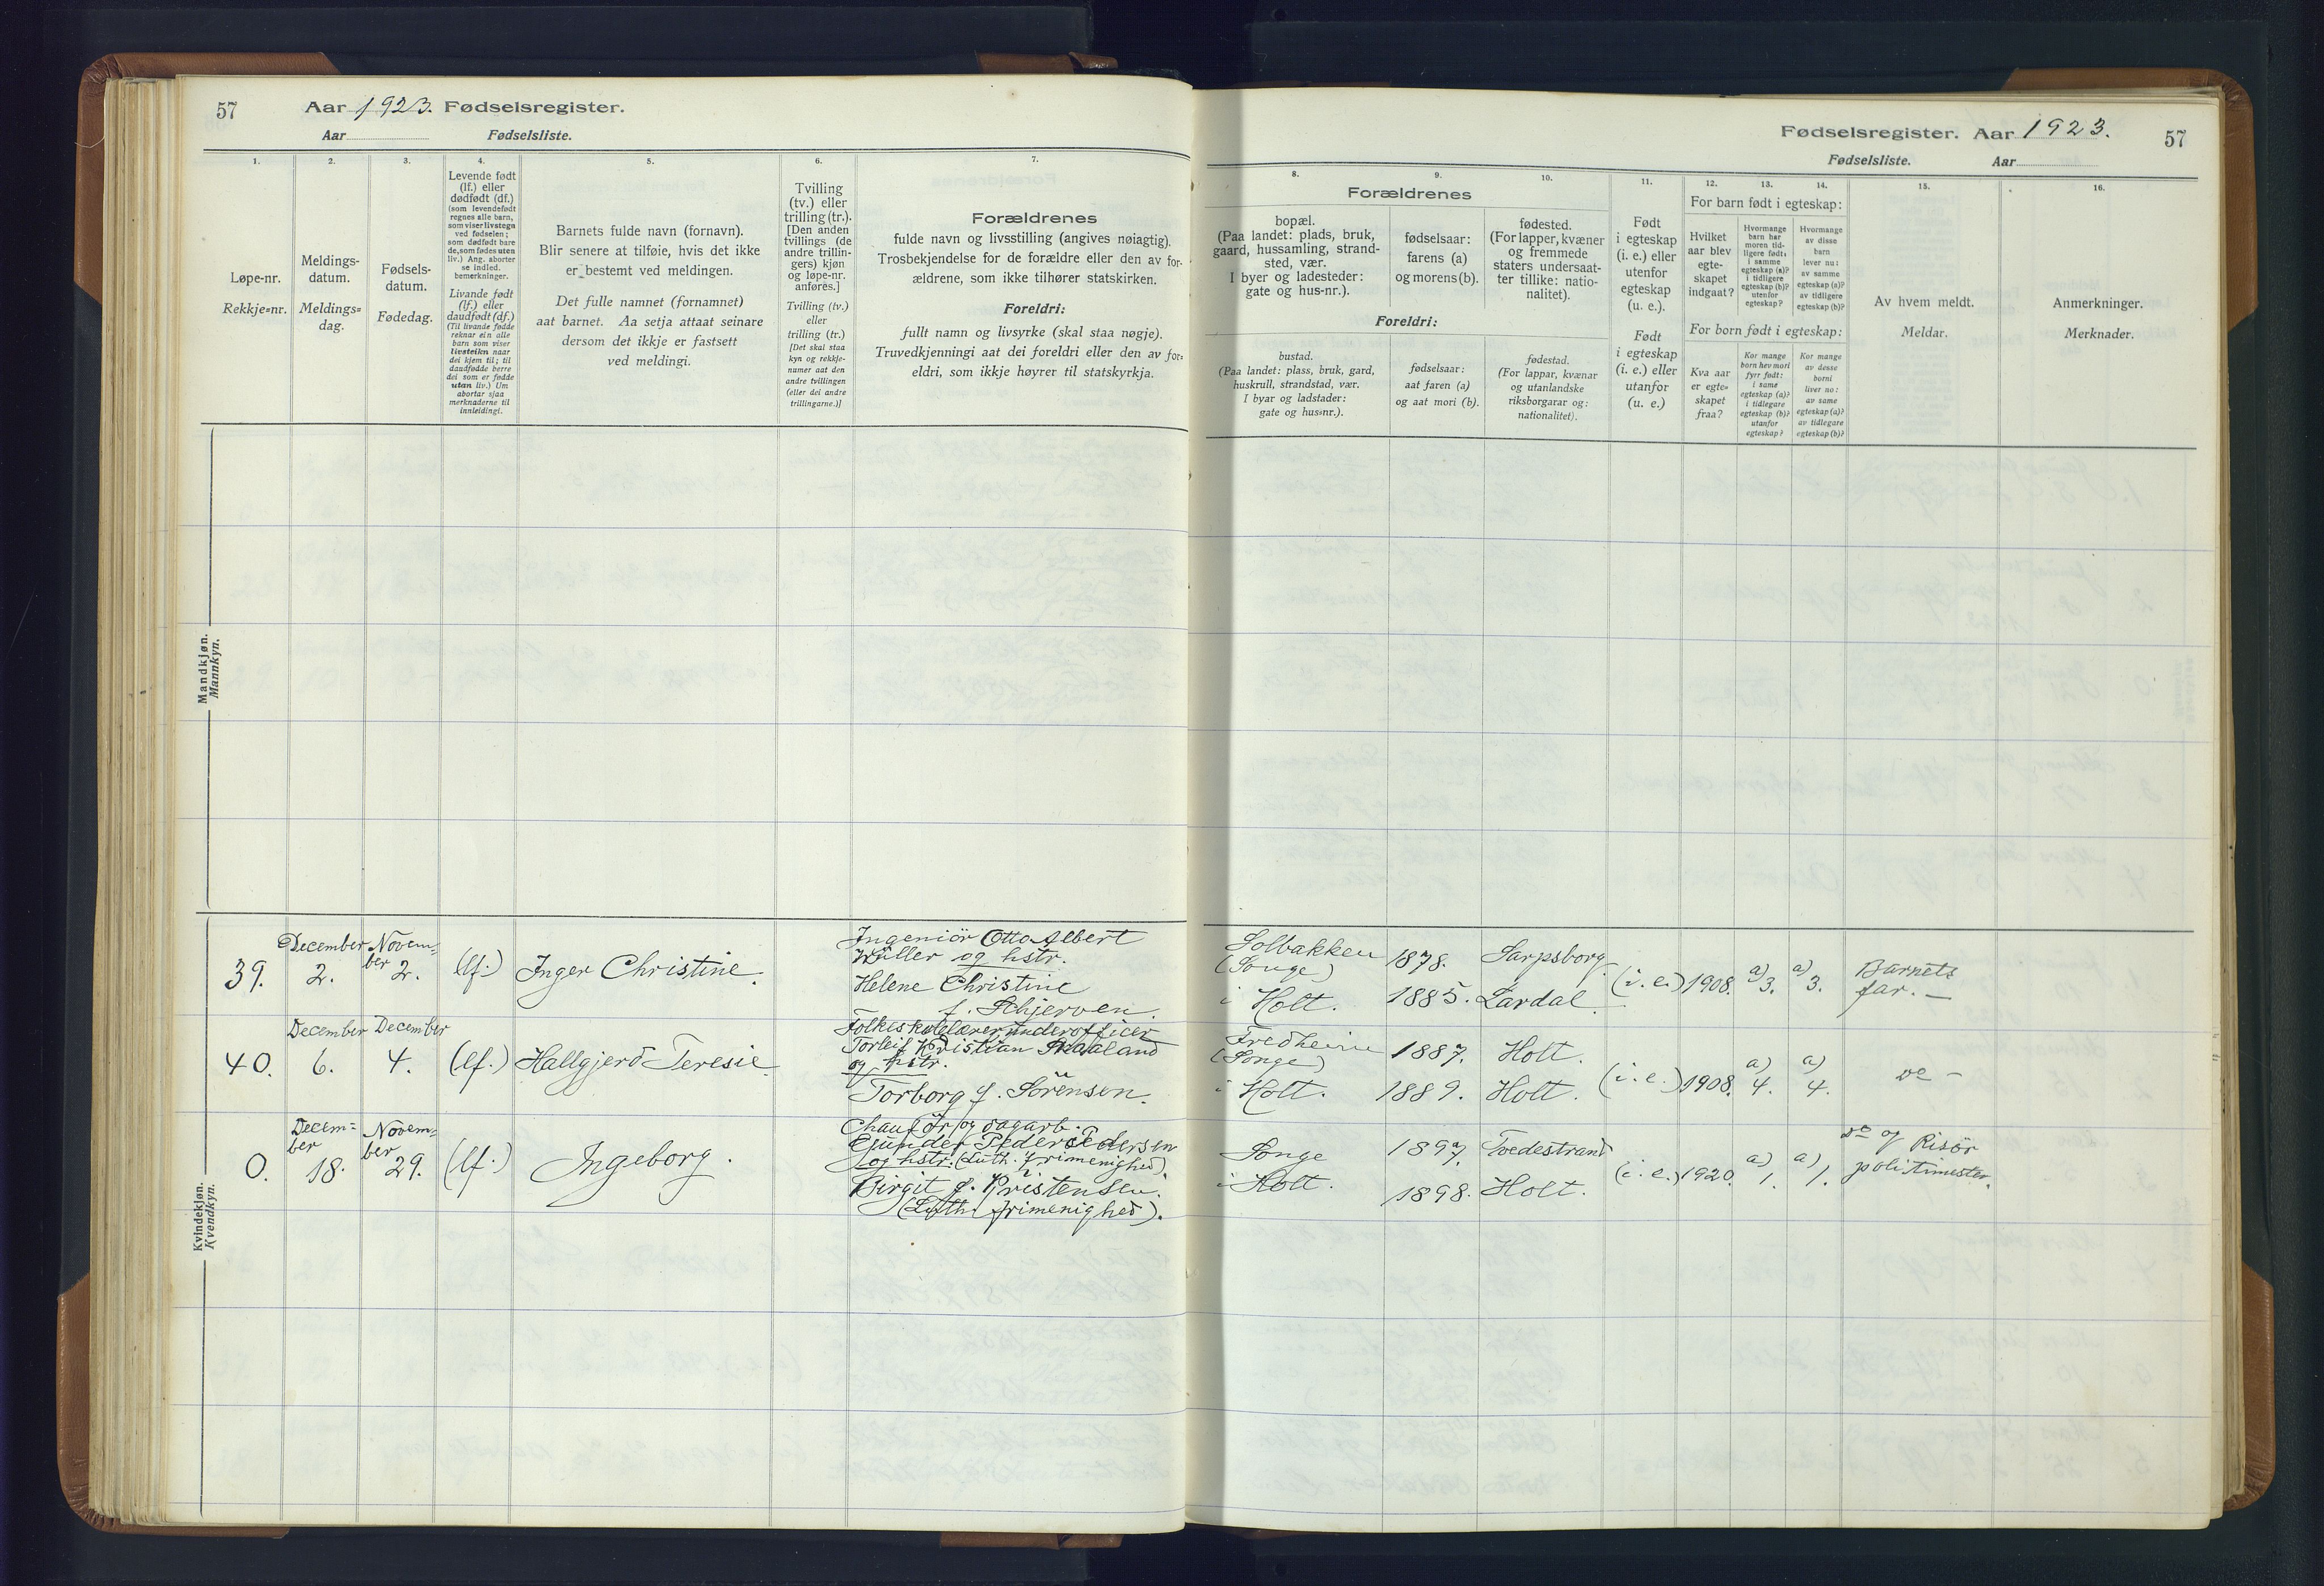 57
Aar 1923. Fødselsregister.
Aar Fødselsliste.
1.
Løpe-nr.
Rekkje=nr.
2.
Meldings-
datum.
Meldings=
dag.
3.
Fødsels-
datum.
Fødedag.
4.
Levende født
(lf.) eller
dødfødt (df.)
(som levendefødt
regnes alle barn,
som viser livstegn
ved fødselen;
som dødfødt bare
de, som fødes uten
liv.) Ang. aborter
se indled.
bemerkninger.
Livande født
(lf.) eller
daudfødt (df.)
(Til livande fødde
reknar ein alle
barn som viser
livsteikn naar
dei kjem til; til
daudfødde berre
dei som er fødde
utan liv.) Um
abortar sjaa
merknaderne til
innleidingi.
5.
Barnets fulde navn (fornavn).
Blir senere at tilføie, hvis det ikke
er bestemt ved meldingen.
Det fulle namnet (fornamnet)
aat barnet. Aa setja attaat seinare
dersom det ikkje er fastsett
ved meldingi.
6.
Tvilling
(tv.) eller
trilling (tr.).
[Den anden
tvillings (de
andre trillin-
gers) kjøn
og løpe-nr.
anføres.]
Tvilling (tv.)
eller
trilling (tr.)
[Det skal staa
kyn og rekkje-
numer aat den
andre tvillingen
(eller dei andre
trillingarne.)]
7.
Forældrenes
fulde navn og livsstilling (angives nøiagtig).
Trosbekjendelse for de forældre eller den av for-
ældrene, som ikke tilhører statskirken.
Foreldri:
fullt namn og livsyrke (skal staa nøgje).
Truvedkjenningi aat dei foreldri eller den av for=
eldri, som ikkje høyrer til statskyrkja.
Mandkjøn.
Mannkyn.
Kvindekjøn.
Kvendkyn.
39.
December
2.
Novem-
ber 2.
(lf.)
Inger Christine.
Ingeniör Otto Albert
Wüller og hstr.
Helene Christine
f. Schjerven.
40.
December
6.
December
4.
(lf.)
Hallgjerd Teresie.
Folkeskolelærer, underofficer
Torleif Kristian Skaaland
og hstr.
Torborg f. Sörensen.
0.
Decem=
ber
18.
Novem=
ber
29.
(lf.)
Ingeborg.
Chauför og dagarb.
Gunder Peder Pedersen
og hstr. (Luth. Frimenighed)
Birgit f. Kristensen.
(Luth. frimenighed).
Fødselsregister. Aar 1923.
57
Fødselsliste. Aar
8.
Forældrenes
bopæl.
(Paa landet: plads, bruk,
gaard, hussamling, strand-
sted, vær.
I byer og ladesteder:
gate og hus-nr.).
9.
fødselsaar:
farens (a)
og morens (b).
10.
fødested.
(For lapper, kvæner
og fremmede
staters undersaat-
ter tillike: natio-
nalitet).
Foreldri:
bustad.
(Paa landet: plass, bruk, gard,
huskrull, strandstad, vær.
I byar og ladstader:
gate og hus=nr.).
fødselsaar:
aat faren (a)
og aat mori (b).
fødestad.
(For lappar, kvænar
og utanlandske
riksborgarar og:
nationalitet).
11.
Født
i egteskap
(i. e.) eller
utenfor
egteskap
(u. e.).
Født
i egteskap
(i. e.) eller
utanfor
(u. e.)
12.
13.
14.
For barn født i egteskap:
Hvilket
aar blev
egte-
skapet
indgaat?
Hvormange
barn har
moren tid-
ligere født:
i samme
egteskap (a)?
i tidligere
egteskap (b)?
utenfor
egteskap?
Hvormange
av disse
barn
lever nu:
av samme
egteskap (a)?
av tidligere
egteskap (b)?
For born født i egteskap:
Kva aar
er egte=
skapet
fraa?
Kor mange
born hev mori
fyrr født:
i same
egteskap (a)?
i tidlegare
egteskap (b)?
utanfor
egteskap?
Kor mange
av desse
borni
liver no:
av same
egteskap (a)?
av tidlegare
egteskap (b)?
15.
Av hvem meldt.
Meldar.
16.
Anmerkninger.
Merknader.
Solbakken
(Songe)
i Holt.
1878.
1885.
Sarpsborg
Lardal
(i. e.)
1908.
a)
3.
a)
3.
Barnets
far. —
Fredheim
(Songe)
i Holt.
1887.
1889.
Holt.
Holt.
(i. e.)
1908.
a)
4.
a)
4.
do —
Songe
i Holt.
1897.
1898.
Tvedestrand
Holt.
(i. e.)
1920.
a)
1.
a)
1.
do og Risör
politimester.